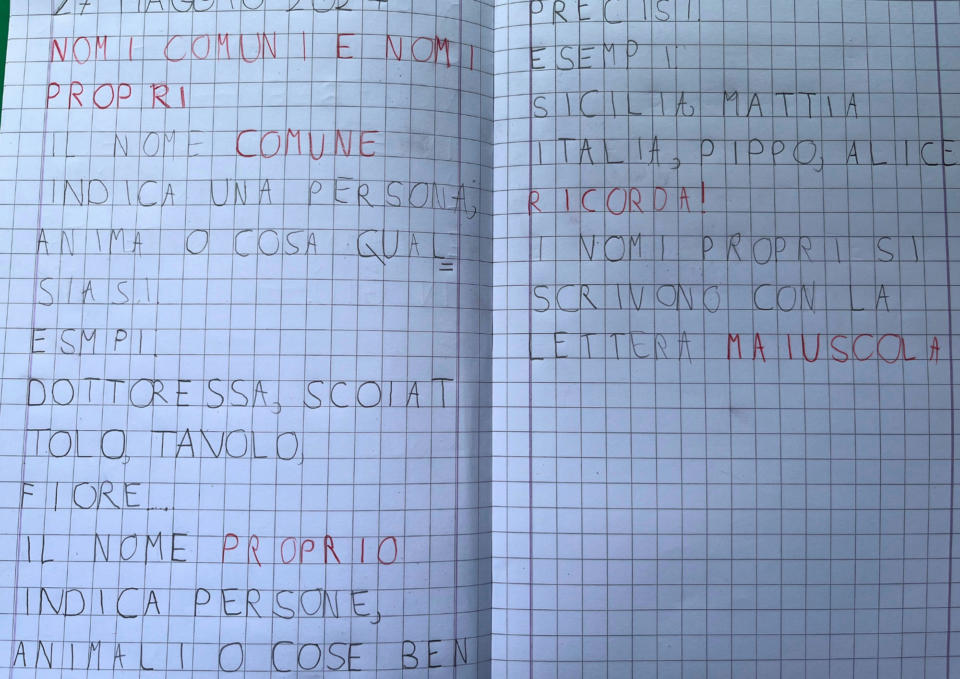 27 MAGGIO 2024
NOMI COMUNI E NOMI
PROPRI
IL NOME COMUNE
INDICA UNA PERSONA,
ANIMA O COSA QUAL
SIASI.
ESMPI:
DOTTORESSA, SCOIAT
TOLO, TAVOLO,
FIORE...
IL NOME PROPRIO
INDICA PERSONE,
ANIMALI O COSE BEN
PRECISI.
ESEMPI:
SICILIA, MATTIA
ITALIA, PIPPO, ALICE
RICORDA!
I NOMI PROPRI SI
SCRIVONO CON LA
LETTERA MAIUSCOLA